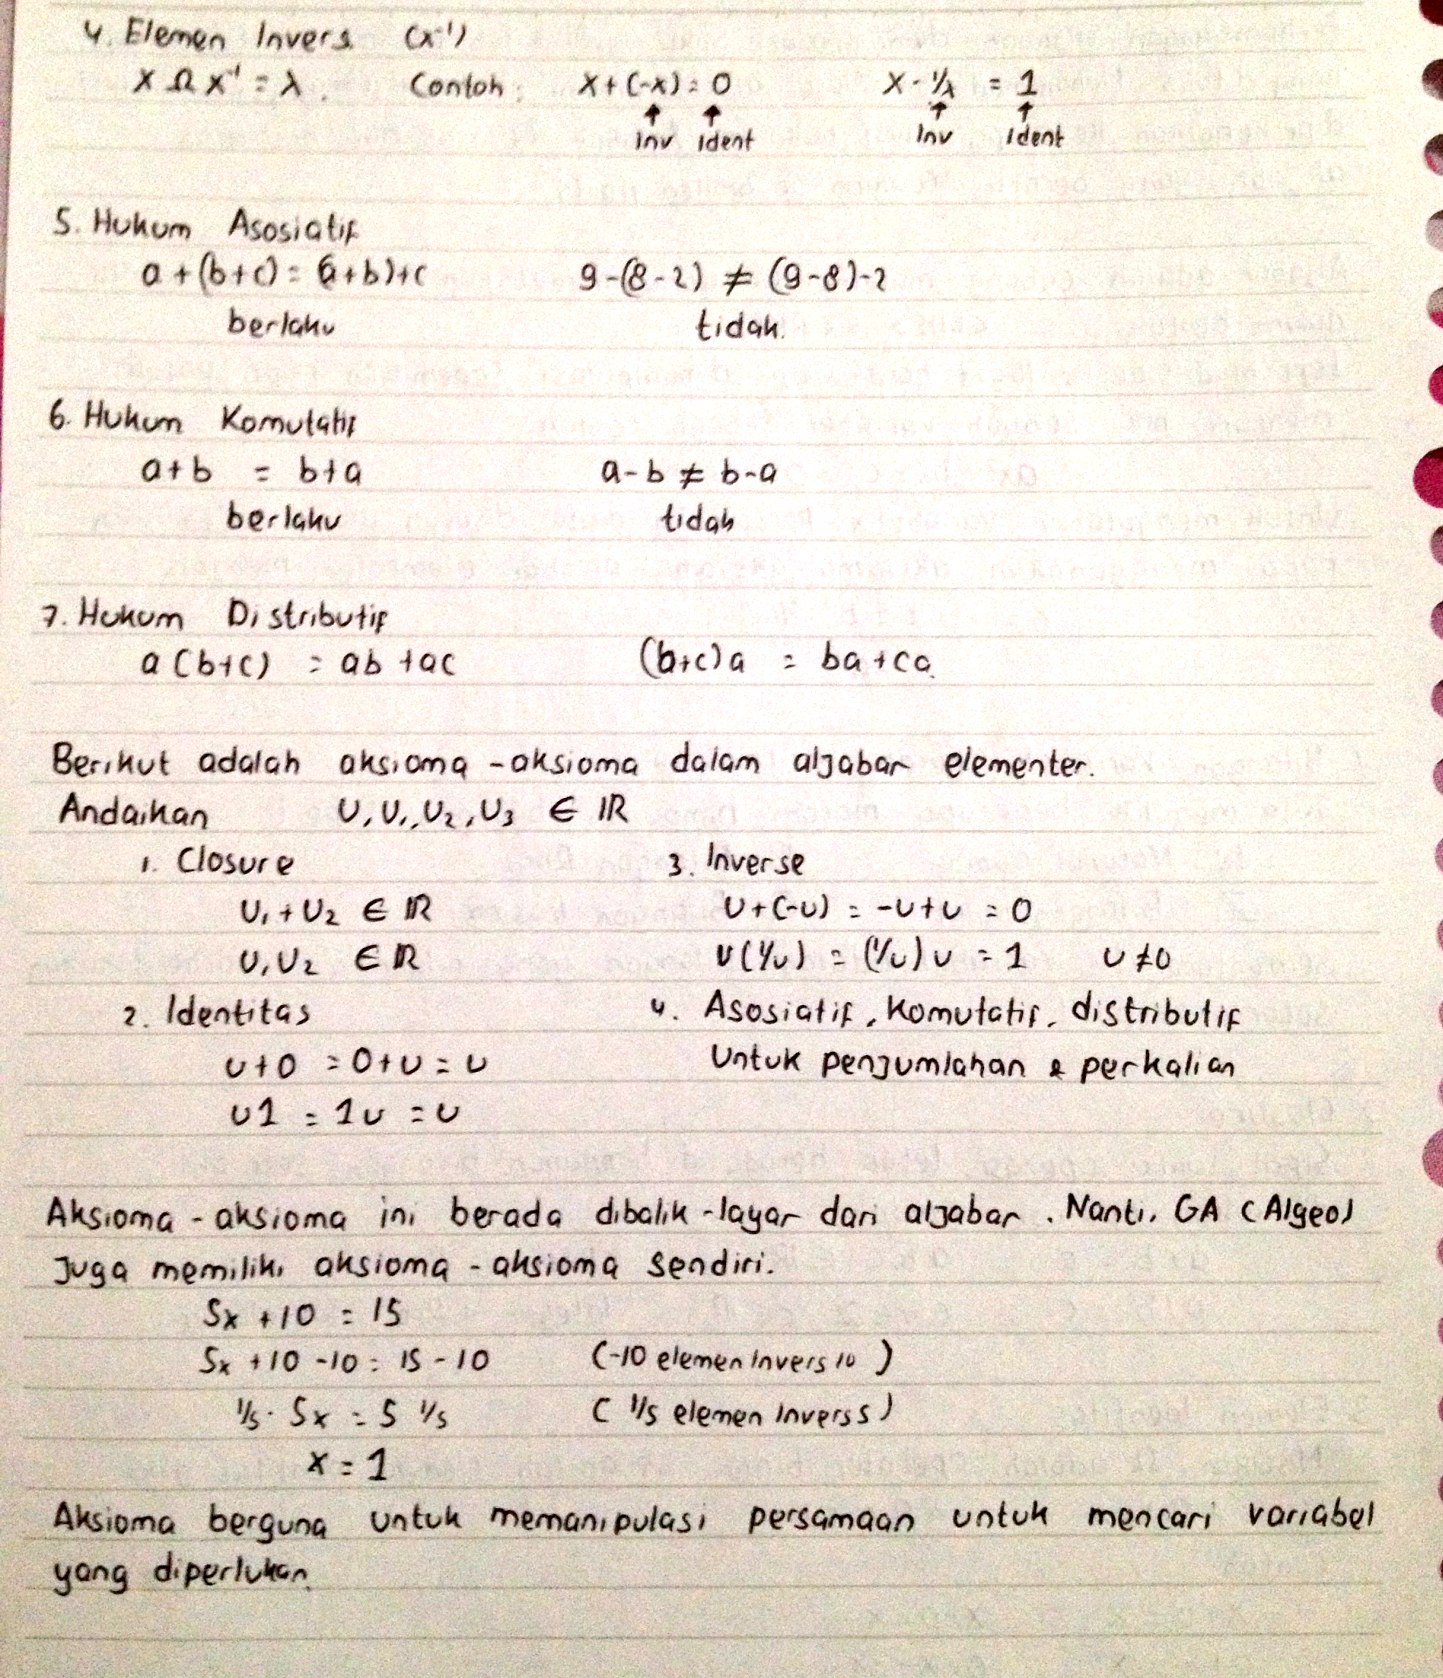 4. Elemen Invers (x⁻¹)
x Ω x⁻¹ = λ. Contoh: x+(-x) = 0 x · 1/x = 1
↑ ↑ ↑ ↑
Inv Ident Inv Ident
5. Hukum Asosiatif
a + (b+c) = (a+b)+c 9-(8-2) ≠ (9-8)-2
berlaku tidak.
6. Hukum Komutatif
a+b = b+a a-b ≠ b-a
berlaku tidak
7. Hukum Distributif
a (b+c) = ab + ac (b+c)a = ba+ca.
Berikut adalah aksioma-aksioma dalam aljabar elementer.
Andaikan U, U₁, U₂, U₃ ∈ ℝ
1. Closure
U₁ + U₂ ∈ ℝ
U₁U₂ ∈ ℝ
2. Identitas
U+0 = 0+U = U
U1 = 1U = U
3. Inverse
U+(-U) = -U+U = 0
U(1/U) = (1/U)U = 1 U≠0
4. Asosiatif, Komutatif, distributif
Untuk penjumlahan & perkalian
Aksioma-aksioma ini berada dibalik-layar dari aljabar. Nanti, GA (Algeo)
Juga memiliki aksioma-aksioma sendiri.
5x + 10 = 15
5x + 10 - 10 = 15 - 10 (-10 elemen Invers 10)
1/5 · 5x = 5 1/5 (1/5 elemen Invers 5)
x = 1
Aksioma berguna untuk memanipulasi persamaan untuk mencari variabel
yang diperlukan.